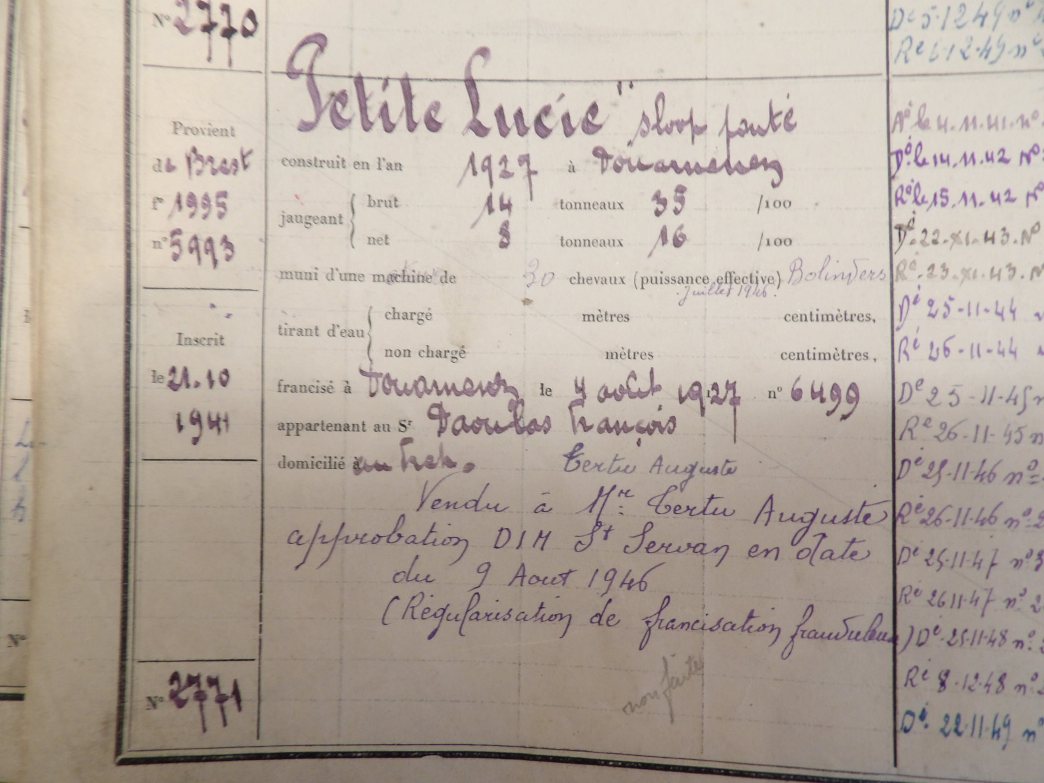 N° 2770
Petite Lucie" sloop ponté
Provient
de Brest
f° 1995
n° 5993
construit en l'an 1927 à Douarnenez
jaugeant { brut 14 tonneaux 35 /100
net 8 tonneaux 16 /100
muni d'une machine de 20 chevaux (puissance effective) Bolinders
juillet 1946.
tirant d'eau { chargé mètres centimètres,
non chargé mètres centimètres,
Inscrit
le 21.10
1941
francisé à Douarnenez le 4 août 1927 n° 6499
appartenant au Sr Daoulas François
domicilié à
Tertu Auguste
Vendu à Mr: Tertu Auguste
approbation DIM St Servan en date
du 9 Aout 1946
(Régularisation de francisation frauduleuse)
non faite
N° 2771
Dé 5.12.49 n°
Ré 6.12.49 n°
Aé le 4.11.41 n°
Dé le 14.11.42 N°
Ré le 15.11.42 N°
Dé 22.XI.43.N°
Ré 23.XI.43.N°
Dé 25-11-44
Ré 26-11-44
Dé 25-11-45 n
Ré 26-11-45 n
Dé 25-11-46 n°
Ré 26-11-46 n° 2
Dé 25-11-47 n° 3
Ré 26 11-47 n° 2
Dé 25-11-48 n°
Ré 8-12-48 n°
Dé 22-11-49 n°
N°